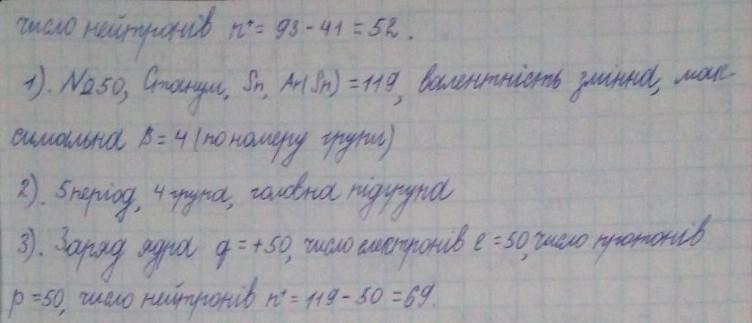 число нейтронів n⁰ = 93 - 41 = 52.
1). №50, Станум, Sn, Ar(Sn) = 119, валентність змінна, мак-
симальна В = 4 (по номеру групи)
2). 5 період, 4 група, головна підгрупа
3). Заряд ядра q = +50, число електронів е = 50, число протонів
р = 50, число нейтронів n⁰ = 119 - 50 = 69.